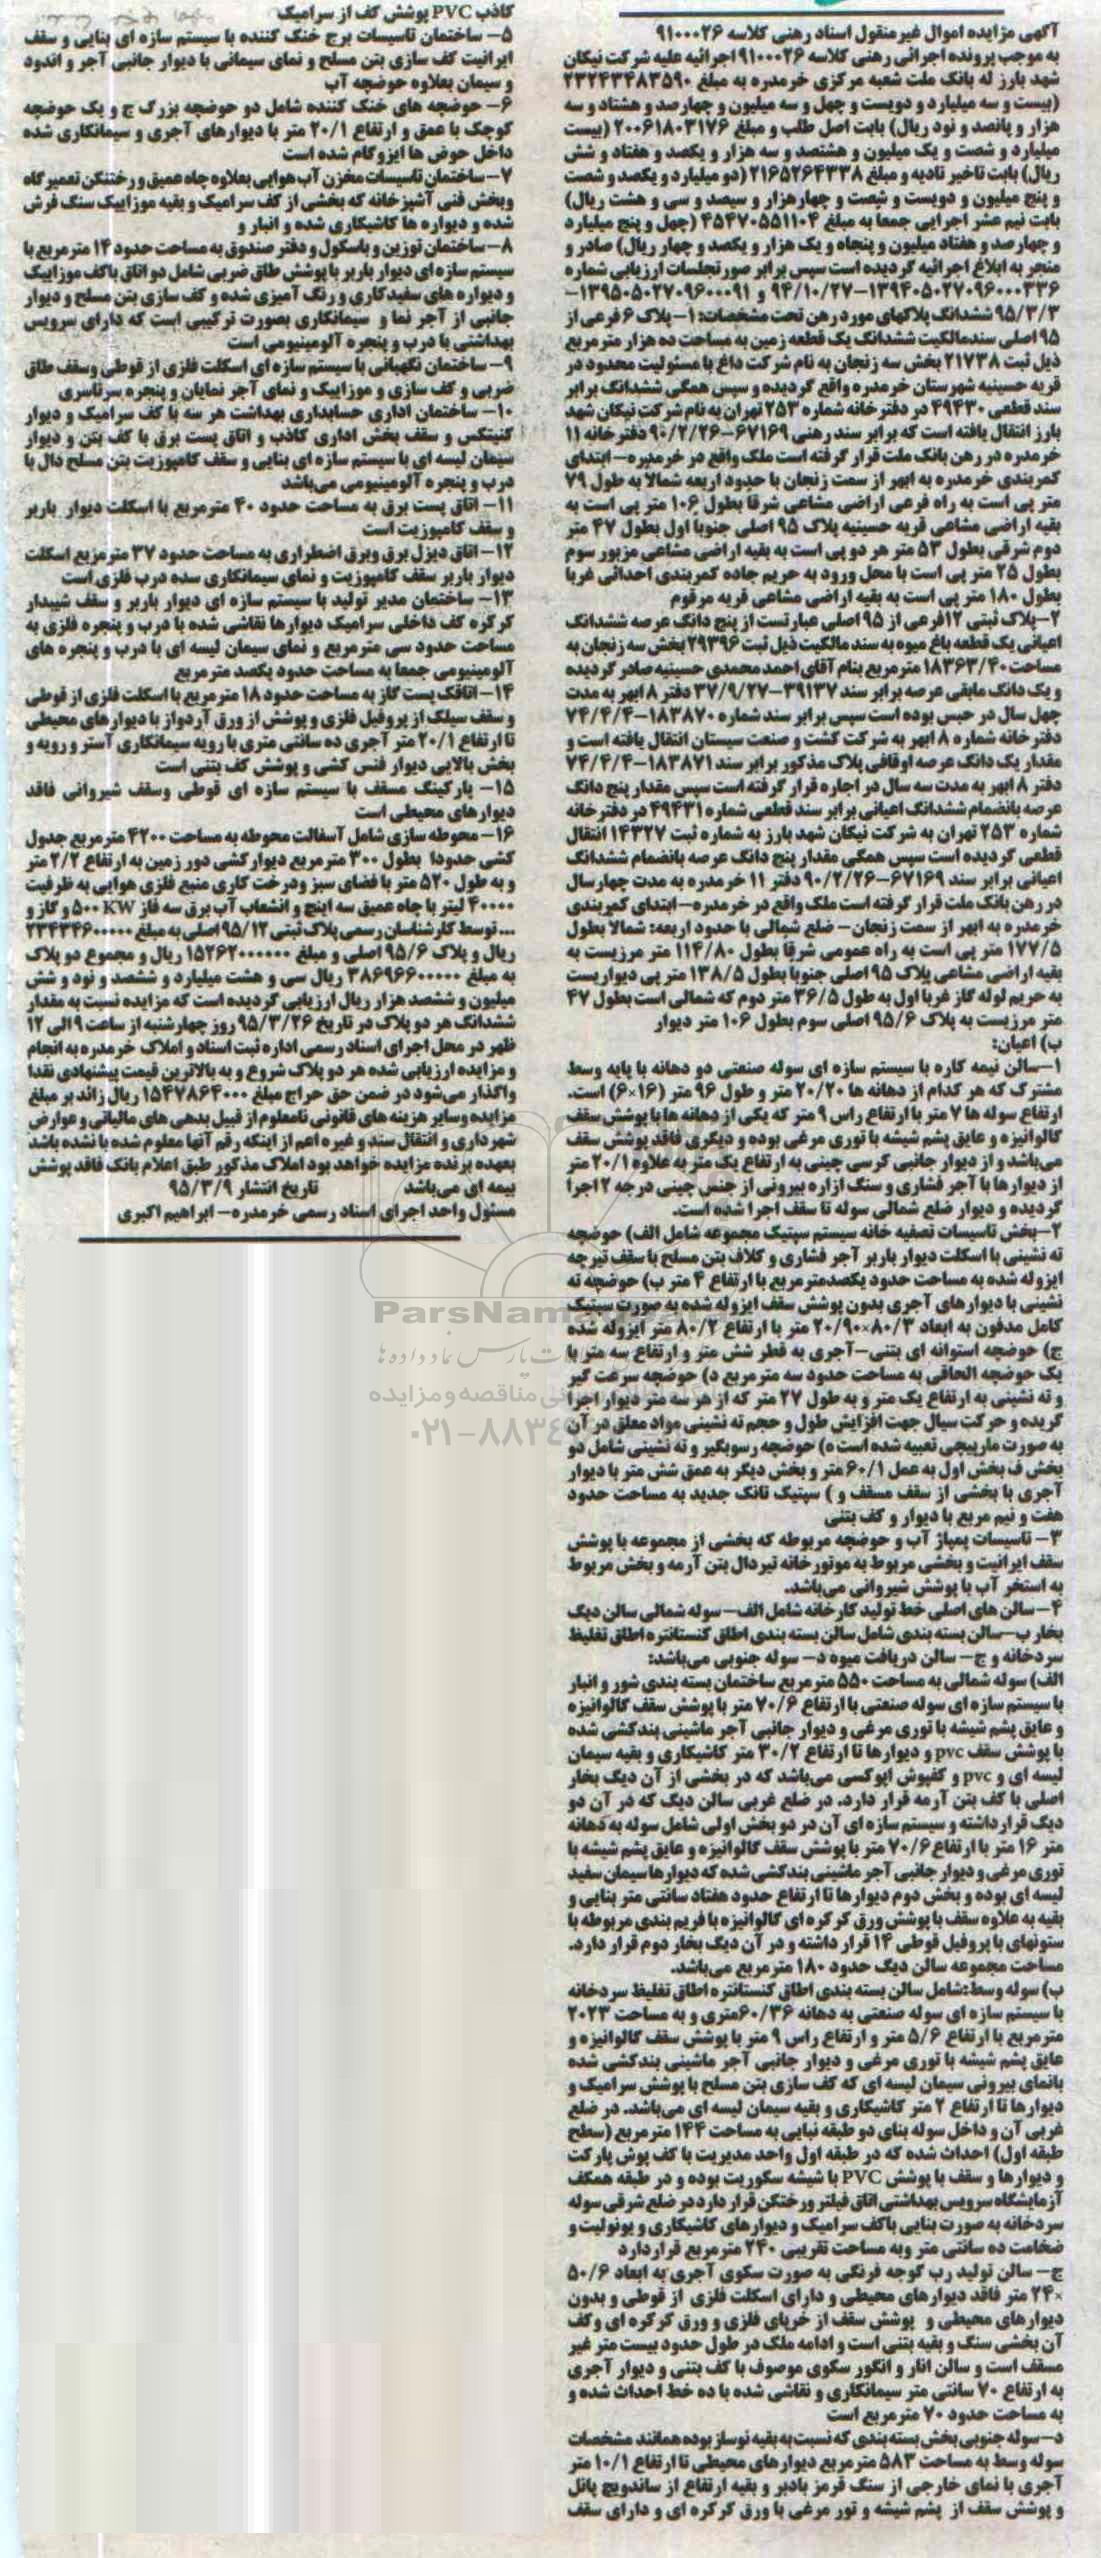 آگهی مزایده اموال غیرمنقول اسناد رهنی کلاسه ۹۱۰۰۰۲۶
به موجب پرونده اجرائی رهنی کلاسه ۹۱۰۰۰۲۶ اجرائیه علیه شرکت نیکان
شهد بارز له بانک ملت شعبه مرکزی خرمدره به مبلغ ۲۳۲۴۳۴۸۳۵۹۰
(بیست و سه میلیارد و دویست و چهل و سه میلیون و چهارصد و هشتاد و سه
هزار و پانصد و نود ریال) بابت اصل طلب و مبلغ ۲۰۰۶۱۸۰۳۱۷۶ (بیست
میلیارد و شصت و یک میلیون و هشتصد و سه هزار و یکصد و هفتاد و شش
ریال) بابت تاخیر تادیه و مبلغ ۲۱۶۵۲۶۴۳۳۸ (دو میلیارد و یکصد و شصت
و پنج میلیون و دویست و شصت و چهارهزار و سیصد و سی و هشت ریال)
بابت نیم عشر اجرایی جمعا به مبلغ ۴۵۴۷۰۵۵۱۱۰۴ (چهل و پنج میلیارد
و چهارصد و هفتاد میلیون و پنجاه و یک هزار و یکصد و چهار ریال) صادر و
منجر به ابلاغ اجرائیه گردیده است سپس برابر صورتجلسات ارزیابی شماره
۱۳۹۴۰۵۰۲۷۰۹۶۰۰۰۳۳۶-۹۴/۱۰/۲۷ و ۱۳۹۵۰۵۰۲۷۰۹۶۰۰۰۹۱-
۹۵/۳/۳ ششدانگ پلاکهای مورد رهن تحت مشخصات: ۱- پلاک ۶ فرعی از
۹۵ اصلی سندمالکیت ششدانگ یک قطعه زمین به مساحت ده هزار مترمربع
ذیل ثبت ۲۱۷۳۸ بخش سه زنجان به نام شرکت داغ با مسئولیت محدود در
قریه حسینیه شهرستان خرمدره واقع گردیده و سپس همگی ششدانگ برابر
سند قطعی ۴۹۴۳۰ در دفترخانه شماره ۲۵۳ تهران به نام شرکت نیکان شهد
بارز انتقال یافته است که برابر سند رهنی ۶۷۱۶۹-۹۰/۲/۲۶ دفترخانه ۱۱
خرمدره در رهن بانک ملت قرار گرفته است ملک واقع در خرمدره- ابتدای
کمربندی خرمدره به ابهر از سمت زنجان با حدود اربعه شمالا به طول ۷۹
متر پی است به راه فرعی اراضی مشاعی شرقا بطول ۱۰۶ متر پی است به
بقیه اراضی مشاعی قریه حسینیه پلاک ۹۵ اصلی جنوبا اول بطول ۴۷ متر
دوم شرقی بطول ۵۳ متر هر دو پی است به بقیه اراضی مشاعی مزبور سوم
بطول ۲۵ متر پی است با محل ورود به حریم جاده کمربندی احداثی غربا
بطول ۱۸۰ متر پی است به بقیه اراضی مشاعی قریه مرقوم
۲- پلاک ثبتی ۱۲فرعی از ۹۵ اصلی عبارتست از پنج دانگ عرصه ششدانگ
اعیانی یک قطعه باغ میوه به سند مالکیت ذیل ثبت ۲۹۳۹۶ بخش سه زنجان به
مساحت ۱۸۳۶۳/۴۰ مترمربع بنام آقای احمد محمدی حسینیه صادر گردیده
و یک دانگ مابقی عرصه برابر سند ۳۹۱۳۷-۳۷/۹/۲۷ دفتر ۸ ابهر به مدت
چهل سال در حبس بوده است سپس برابر سند شماره ۱۸۳۸۷۰-۷۴/۴/۴
دفترخانه شماره ۸ ابهر به شرکت کشت و صنعت سیستان انتقال یافته است و
مقدار یک دانگ عرصه اوقافی پلاک مذکور برابر سند ۱۸۳۸۷۱-۷۴/۴/۴
دفتر ۸ ابهر به مدت سه سال در اجاره قرار گرفته است سپس مقدار پنج دانگ
عرصه بانضمام ششدانگ اعیانی برابر سند قطعی شماره ۴۹۴۳۱ در دفترخانه
شماره ۲۵۳ تهران به شرکت نیکان شهد بارز به شماره ثبت ۱۴۳۲۷ انتقال
قطعی گردیده است سپس همگی مقدار پنج دانگ عرصه بانضمام ششدانگ
اعیانی برابر سند ۶۷۱۶۹-۹۰/۲/۲۶ دفتر ۱۱ خرمدره به مدت چهارسال
در رهن بانک ملت قرار گرفته است ملک واقع در خرمدره- ابتدای کمربندی
خرمدره به ابهر از سمت زنجان- ضلع شمالی با حدود اربعه: شمالا بطول
۱۷۷/۵ متر پی است به راه عمومی شرقا بطول ۱۱۴/۸۰ متر مرزیست به
بقیه اراضی مشاعی پلاک ۹۵ اصلی جنوبا بطول ۱۳۸/۵ متر پی دیواریست
به حریم لوله گاز غربا اول به طول ۳۶/۵ متر دوم که شمالی است بطول ۴۷
متر مرزیست به پلاک ۹۵/۶ اصلی سوم بطول ۱۰۶ متر دیوار
ب) اعیان:
۱-سالن نیمه کاره با سیستم سازه ای سوله صنعتی دو دهانه با پایه وسط
مشترک که هر کدام از دهانه ها ۲۰/۲۰ متر و طول ۹۶ متر (۱۶×۶) است.
ارتفاع سوله ها ۷ متر با ارتفاع راس ۹ متر که یکی از دهانه ها با پوشش سقف
گالوانیزه و عایق پشم شیشه با توری مرغی بوده و دیگری فاقد پوشش سقف
می‌باشد و از دیوار جانبی کرسی چینی به ارتفاع یک متر به علاوه ۲۰/۱ متر
از دیوارها با آجر فشاری و سنگ ازاره بیرونی از جنس چینی درجه ۲ اجرا
گردیده و دیوار ضلع شمالی سوله تا سقف اجرا شده است.
۲-بخش تاسیسات تصفیه خانه سیستم سپتیک مجموعه شامل الف) حوضچه
ته نشینی با اسکلت دیوار باربر آجر فشاری و کلاف بتن مسلح با سقف تیرچه
ایزوله شده به مساحت حدود یکصدمترمربع با ارتفاع ۴ متر ب) حوضچه ته
نشینی با دیوارهای آجری بدون پوشش سقف ایزوله شده به صورت سپتیک
کامل مدفون به ابعاد ۸۰/۳×۲۰/۹۰ متر با ارتفاع ۸۰/۲ متر ایزوله شده
ج) حوضچه استوانه ای بتنی-آجری به قطر شش متر و ارتفاع سه متر با
یک حوضچه الحاقی به مساحت حدود سه مترمربع د) حوضچه سرعت گیر
و ته نشینی به ارتفاع یک متر و به طول ۲۷ متر که از هر سه متر دیوار اجرا
گریده و حرکت سیال جهت افزایش طول و حجم ته نشینی مواد معلق در آن
به صورت مارپیچی تعبیه شده است ه) حوضچه رسوبگیر و ته نشینی شامل دو
بخش ف بخش اول به عمل ۶۰/۱ متر و بخش دیگر به عمق شش متر با دیوار
آجری با بخشی از سقف مسقف و ) سپتیک تانک جدید به مساحت حدود
هفت و نیم مربع با دیوار و کف بتنی
۳- تاسیسات پمپاژ آب و حوضچه مربوطه که بخشی از مجموعه با پوشش
سقف ایرانیت و بخشی مربوط به موتورخانه تیردال بتن آرمه و بخش مربوط
به استخر آب با پوشش شیروانی می‌باشد.
۴-سالن های اصلی خط تولید کارخانه شامل الف- سوله شمالی سالن دیگ
بخار ب-سالن بسته بندی شامل سالن بسته بندی اطاق کنستانتره اطاق تغلیظ
سردخانه و ج- سالن دریافت میوه د- سوله جنوبی می‌باشد:
الف) سوله شمالی به مساحت ۵۵۰ مترمربع ساختمان بسته بندی شور و انبار
با سیستم سازه ای سوله صنعتی با ارتفاع ۷۰/۶ متر با پوشش سقف گالوانیزه
و عایق پشم شیشه با توری مرغی و دیوار جانبی آجر ماشینی بندکشی شده
با پوشش سقف pvc و دیوارها تا ارتفاع ۳۰/۲ متر کاشیکاری و بقیه سیمان
لیسه ای و pvc و کفپوش اپوکسی می‌باشد که در بخشی از آن دیگ بخار
اصلی با کف بتن آرمه قرار دارد. در ضلع غربی سالن دیگ که در آن دو
دیگ قرارداشته و سیستم سازه ای آن در دو بخش اولی شامل سوله به دهانه
متر ۱۶ متر با ارتفاع ۷۰/۶ متر با پوشش سقف گالوانیزه و عایق پشم شیشه با
توری مرغی و دیوار جانبی آجر ماشینی بندکشی شده که دیوارها سیمان سفید
لیسه ای بوده و بخش دوم دیوارها تا ارتفاع حدود هفتاد سانتی متر بنایی و
بقیه به علاوه سقف با پوشش ورق کرکره ای گالوانیزه با فریم بندی مربوطه با
ستونهای با پروفیل قوطی ۱۴ قرار داشته و در آن دیگ بخار دوم قرار دارد.
مساحت مجموعه سالن دیگ حدود ۱۸۰ مترمربع می‌باشد.
ب) سوله وسط:شامل سالن بسته بندی اطاق کنستانتره اطاق تغلیظ سردخانه
با سیستم سازه ای سوله صنعتی به دهانه ۶۰/۳۶متری و به مساحت ۲۰۲۳
مترمربع با ارتفاع ۵/۶ متر و ارتفاع راس ۹ متر با پوشش سقف گالوانیزه و
عایق پشم شیشه با توری مرغی و دیوار جانبی آجر ماشینی بندکشی شده
بانمای بیرونی سیمان لیسه ای که کف سازی بتن مسلح با پوشش سرامیک و
دیوارها تا ارتفاع ۲ متر کاشیکاری و بقیه سیمان لیسه ای می‌باشد. در ضلع
غربی آن و داخل سوله بنای دو طبقه نبایی به مساحت ۱۴۴ مترمربع (سطح
طبقه اول) احداث شده که در طبقه اول واحد مدیریت با کف پوش پارکت
و دیوارها و سقف با پوشش PVC با شیشه سکوریت بوده و در طبقه همکف
آزمایشگاه سرویس بهداشتی اتاق فیلتر ورختکن قرار دارد در ضلع شرقی سوله
سردخانه به صورت بنایی باکف سرامیک و دیوارهای کاشیکاری و یونولیت و
ضخامت ده سانتی متر وبه مساحت تقریبی ۲۴۰ مترمربع قراردارد
ج- سالن تولید رب گوجه فرنگی به صورت سکوی آجری به ابعاد ۵۰/۶
×۲۴ متر فاقد دیوارهای محیطی و دارای اسکلت فلزی از قوطی و بدون
دیوارهای محیطی و پوشش سقف از خرپای فلزی و ورق کرکره ای وکف
آن بخشی سنگ و بقیه بتنی است و ادامه ملک در طول حدود بیست متر غیر
مسقف است و سالن انار و انگور سکوی موصوف با کف بتنی و دیوار آجری
به ارتفاع ۷۰ سانتی متر سیمانکاری و نقاشی شده با ده خط احداث شده و
به مساحت حدود ۷۰ مترمربع است
د-سوله جنوبی بخش بسته بندی که نسبت به بقیه نوساز بوده همانند مشخصات
سوله وسط به مساحت ۵۸۳ مترمربع دیوارهای محیطی تا ارتفاع ۱۰/۱ متر
آجری با نمای خارجی از سنگ قرمز بادبر و بقیه ارتفاع از ساندویچ پانل
و پوشش سقف از پشم شیشه و تور مرغی با ورق کرکره ای و دارای سقف
کاذب PVC پوشش کف از سرامیک
۵- ساختمان تاسیسات برج خنک کننده با سیستم سازه ای بنایی و سقف
ایرانیت کف سازی بتن مسلح و نمای سیمانی با دیوار جانبی آجر و اندود
و سیمان بعلاوه حوضچه آب
۶- حوضچه های خنک کننده شامل دو حوضچه بزرگ ج و یک حوضچه
کوچک با عمق و ارتفاع ۲۰/۱ متر با دیوارهای آجری و سیمانکاری شده
داخل حوض ها ایزوگام شده است
۷- ساختمان تاسیسات مخزن آب هوایی بعلاوه چاه عمیق و رختکن تعمیرگاه
وبخش فنی آشپزخانه که بخشی از کف سرامیک و بقیه موزاییک سنگ فرش
شده و دیواره ها کاشیکاری شده و انبار و
۸- ساختمان توزین و باسکول و دفتر صندوق به مساحت حدود ۱۴ مترمربع با
سیستم سازه ای دیوار باربر با پوشش طاق ضربی شامل دو اتاق باکف موزاییک
و دیواره های سفیدکاری و رنگ آمیزی شده و کف سازی بتن مسلح و دیوار
جانبی از آجر نما و سیمانکاری بصورت ترکیبی است که دارای سرویس
بهداشتی با درب و پنجره آلومینیومی است
۹- ساختمان نگهبانی با سیستم سازه ای اسکلت فلزی از قوطی وسقف طاق
ضربی و کف سازی و موزاییک و نمای آجر نمایان و پنجره سرتاسری
۱۰- ساختمان اداری حسابداری بهداشت هر سه با کف سرامیک و دیوار
کنیتکس و سقف بخش اداری کاذب و اتاق پست برق با کف بتن و دیوار
سیمان لیسه ای با سیستم سازه ای بنایی و سقف کامپوزیت بتن مسلح دال با
درب و پنجره آلومینیومی می‌باشد
۱۱- اتاق پست برق به مساحت حدود ۴۰ مترمربع با اسکلت دیوار باربر
و سقف کامپوزیت است
۱۲- اتاق دیزل برق وبرق اضطراری به مساحت حدود ۳۷ مترمربع اسکلت
دیوار باربر سقف کامپوزیت و نمای سیمانکاری سده درب فلزی است
۱۳- ساختمان مدیر تولید با سیستم سازه ای دیوار باربر و سقف شیبدار
کرکره کف داخلی سرامیک دیوارها نقاشی شده با درب و پنجره فلزی به
مساحت حدود سی مترمربع و نمای سیمان لیسه ای با درب و پنجره های
آلومینیومی جمعا به مساحت حدود یکصد مترمربع
۱۴- اتاقک پست گاز به مساحت حدود ۱۸ مترمربع با اسکلت فلزی از قوطی
و سقف سیلک از پروفیل فلزی و پوشش از ورق آردواز با دیوارهای محیطی
تا ارتفاع ۲۰/۱ متر آجری ده سانتی متری با رویه سیمانکاری آستر و رویه و
بخش بالایی دیوار فنس کشی و پوشش کف بتنی است
۱۵- پارکینگ مسقف با سیستم سازه ای قوطی وسقف شیروانی فاقد
دیوارهای محیطی است
۱۶- محوطه سازی شامل آسفالت محوطه به مساحت ۴۲۰۰ مترمربع جدول
کشی حدودا بطول ۳۰۰ مترمربع دیوارکشی دور زمین به ارتفاع ۲/۲ متر
و به طول ۵۲۰ متر با فضای سبز ودرخت کاری منبع فلزی هوایی به ظرفیت
۴۰۰۰۰ لیتر با چاه عمیق سه اینچ و انشعاب آب برق سه فاز ۵۰۰ KW و گاز و
... توسط کارشناسان رسمی پلاک ثبتی ۹۵/۱۲ اصلی به مبلغ ۲۳۴۳۴۶۰۰۰۰۰
ریال و پلاک ۹۵/۶ اصلی و مبلغ ۱۵۲۶۲۰۰۰۰۰۰ ریال و مجموع دو پلاک
به مبلغ ۳۸۶۹۶۶۰۰۰۰۰ ریال سی و هشت میلیارد و ششصد و نود و شش
میلیون و ششصد هزار ریال ارزیابی گردیده است که مزایده نسبت به مقدار
ششدانگ هر دو پلاک در تاریخ ۹۵/۳/۲۶ روز چهارشنبه از ساعت ۹ الی ۱۲
ظهر در محل اجرای اسناد رسمی اداره ثبت اسناد و املاک خرمدره به انجام
و مزایده ارزیابی شده هر دو پلاک شروع و به بالاترین قیمت پیشنهادی نقدا
واگذار می‌شود در ضمن حق حراج مبلغ ۱۵۴۷۸۶۴۰۰۰ ریال زائد بر مبلغ
مزایده وسایر هزینه های قانونی نامعلوم از قبیل بدهی های مالیاتی و عوارض
شهرداری و انتقال سند و غیره اعم از اینکه رقم آنها معلوم شده یا نشده باشد
بعهده برنده مزایده خواهد بود املاک مذکور طبق اعلام بانک فاقد پوشش
بیمه ای می‌باشد تاریخ انتشار ۹۵/۳/۹
مسئول واحد اجرای اسناد رسمی خرمدره- ابراهیم اکبری